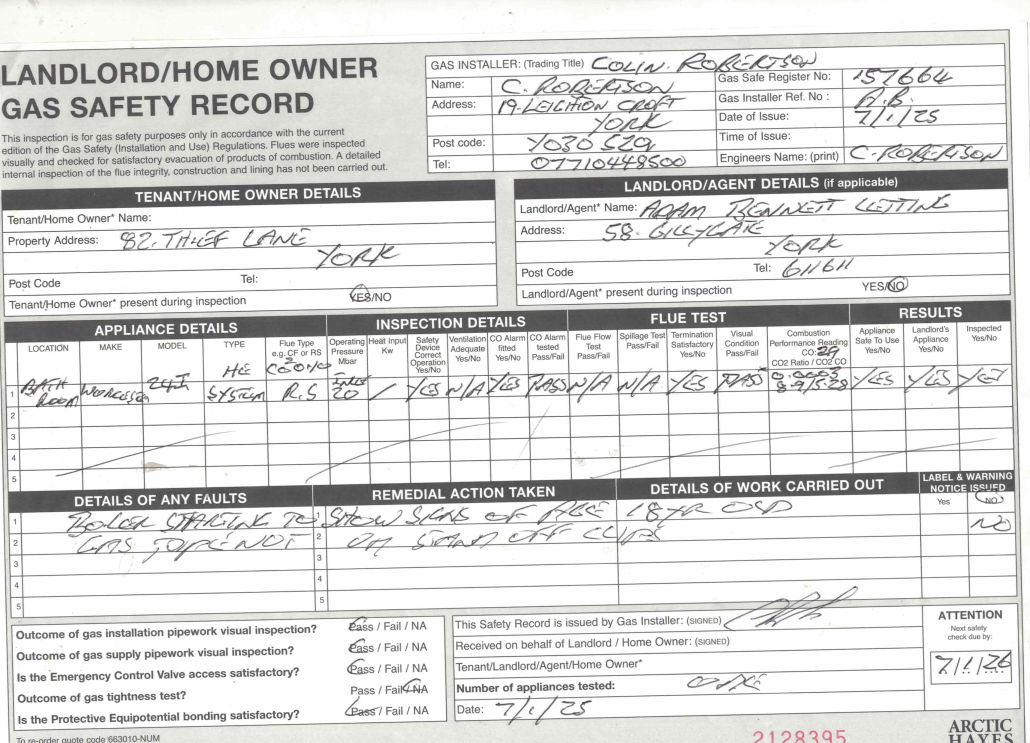 LANDLORD/HOME OWNER
GAS SAFETY RECORD
This inspection is for gas safety purposes only in accordance with the current
edition of the Gas Safety (Installation and Use) Regulations. Flues were inspected
visually and checked for satisfactory evacuation of products of combustion. A detailed
internal inspection of the flue integrity, construction and lining has not been carried out.
GAS INSTALLER: (Trading Title) COLIN. ROBERTSON
Name: C. ROBERTSON
Gas Safe Register No: 157664
Address: 19. LEIGHTON CROFT
Gas Installer Ref. No : A.B.
YORK
Date of Issue: 7/1/25
Post code: YO30 5ZQ
Time of Issue:
Tel: 07710448500
Engineers Name: (print) C. ROBERTSON
TENANT/HOME OWNER DETAILS
Tenant/Home Owner* Name:
Property Address: 82. THIEF LANE
YORK
Post Code Tel:
Tenant/Home Owner* present during inspection YES/NO
LANDLORD/AGENT DETAILS (if applicable)
Landlord/Agent* Name: ADAM BENNETT LETTING
Address: 58. GILLYGATE
YORK
Post Code Tel: 611611
Landlord/Agent* present during inspection YES/NO
APPLIANCE DETAILS INSPECTION DETAILS FLUE TEST RESULTS
LOCATION MAKE MODEL TYPE Flue Type e.g. CF or RS Operating Pressure Mbar Heat Input Kw Safety Device Correct Operation Yes/No Ventilation Adequate Yes/No CO Alarm fitted Yes/No CO Alarm tested Pass/Fail Flue Flow Test Pass/Fail Spillage Test Pass/Fail Termination Satisfactory Yes/No Visual Condition Pass/Fail Combustion Performance Reading CO: 29 CO2 Ratio / CO2 CO Appliance Safe To Use Yes/No Landlord's Appliance Yes/No Inspected Yes/No
1 BATH ROOM WORCESTER 24I HE SYSTEM R.S 20 / YES N/A YES PASS N/A N/A YES PASS 0.0003 YES YES YES
2
3
4
5
DETAILS OF ANY FAULTS REMEDIAL ACTION TAKEN DETAILS OF WORK CARRIED OUT LABEL & WARNING NOTICE ISSUED
Yes NO
1 BOILER STARTING TO 1 SHOW SIGNS OF AGE 18 YR OLD
2 GAS PIPE NOT 2 ON STAND OFF CLIPS NO
3 3
4 4
5 5
Outcome of gas installation pipework visual inspection? Pass / Fail / NA
Outcome of gas supply pipework visual inspection? Pass / Fail / NA
Is the Emergency Control Valve access satisfactory? Pass / Fail / NA
Outcome of gas tightness test? Pass / Fail / NA
Is the Protective Equipotential bonding satisfactory? Pass / Fail / NA
This Safety Record is issued by Gas Installer: (SIGNED)
Received on behalf of Landlord / Home Owner: (SIGNED)
Tenant/Landlord/Agent/Home Owner*
Number of appliances tested: ONE
Date: 7/1/25
ATTENTION
Next safety
check due by:
7/1/26
To re-order quote code 663010-NUM
2128395
ARCTIC
HAYES